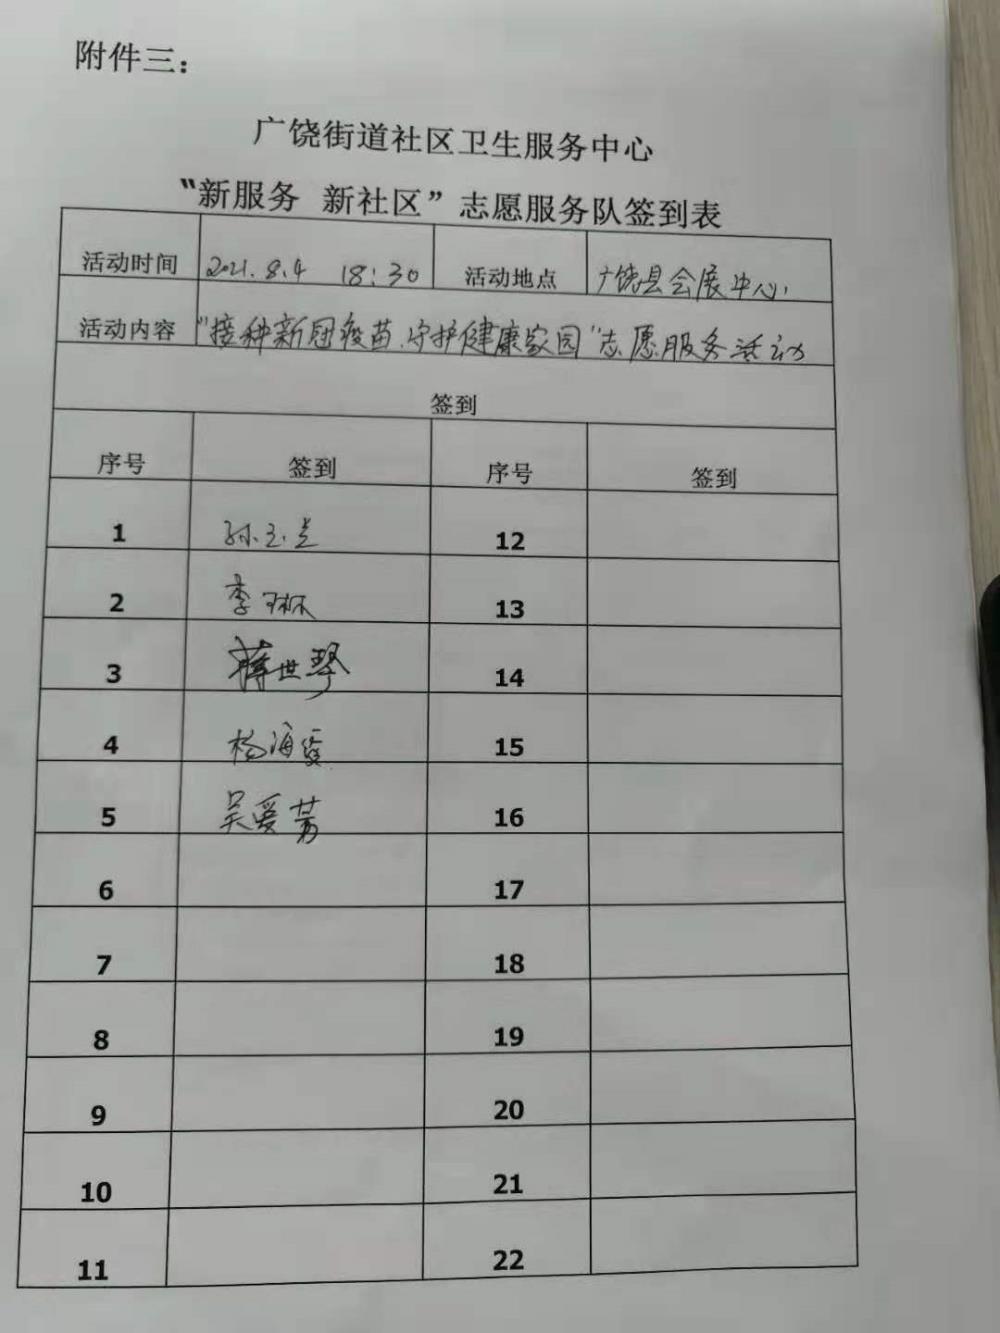 附件三：
广饶街道社区卫生服务中心
“新服务 新社区”志愿服务队签到表
活动时间 2021.8.4 18:30 活动地点 广饶县会展中心
活动内容 “接种新冠疫苗、守护健康家园”志愿服务活动
签到
序号 签到 序号 签到
1 孙玉兰 12
2 李琳 13
3 蒋世琴 14
4 杨海霞 15
5 吴爱芳 16
6 17
7 18
8 19
9 20
10 21
11 22